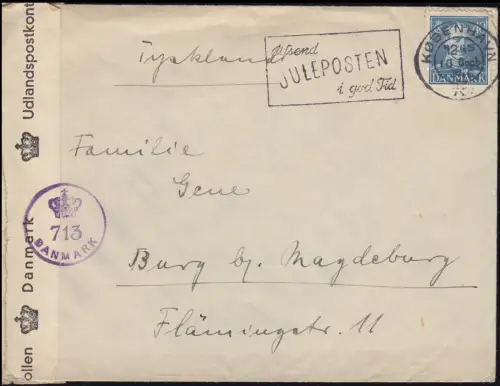 Tyskland
Afsend
JULEPOSTEN
i god Tid
KØBENHAVN
DANMARK
Familie
Gene
Burg bj. Magdeburg
Flämingstr. 11
713
DANMARK
ollen Danmark Udlandspostkont